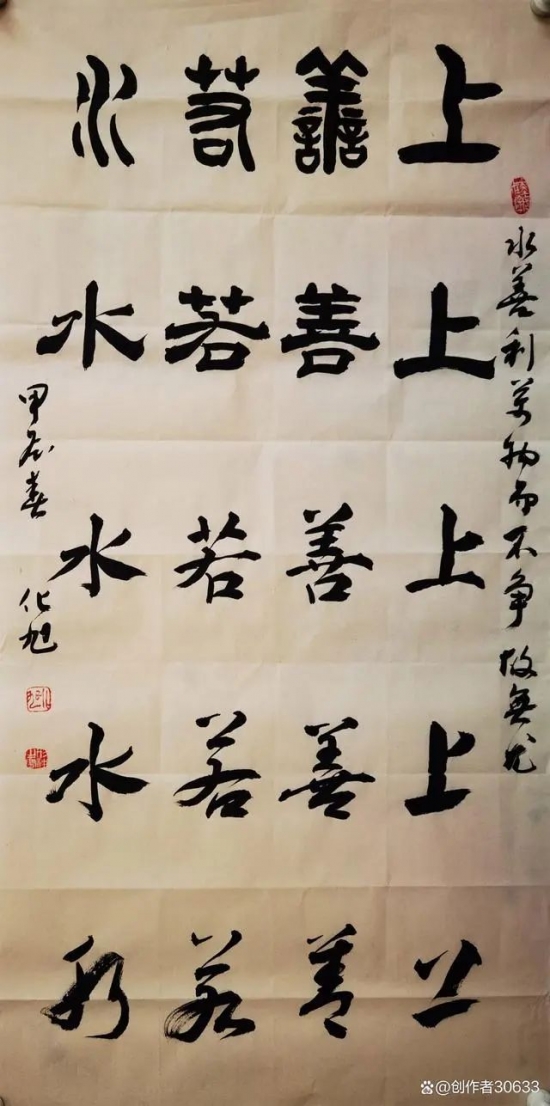 水善利萬物而不争故無尤
上譱若水
上善若水
上善若水
上善若水
上善若水
甲辰春 化旭
@创作者30633